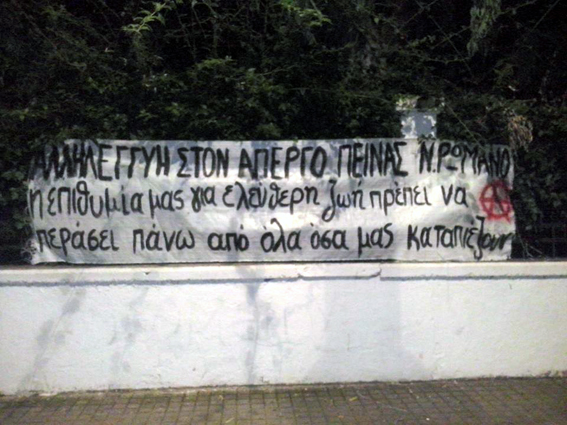 ΑΛΛΗΛΕΓΓΥΗ ΣΤΟΝ ΑΠΕΡΓΟ ΠΕΙΝΑΣ Ν.ΡΩΜΑΝΟ
η επιθυμία μας για ελεύθερη ζωή πρέπει να
περάσει πάνω από όλα όσα μας καταπιέζουν